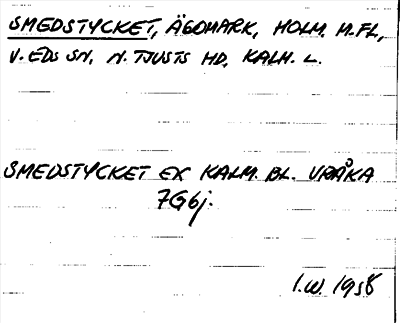 SMEDSTYCKET, ÄGOMARK, HOLM M.FL,
V. EDS SN, N. TJUSTS HD, KALM. L.
SMEDSTYCKET EK KALM. BL. VRÅKA
7G6j.
I.W. 1958